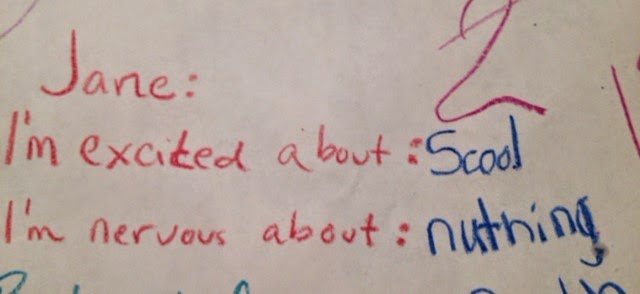 Jane:
I'm excited about: Scool
I'm nervous about: nuthing